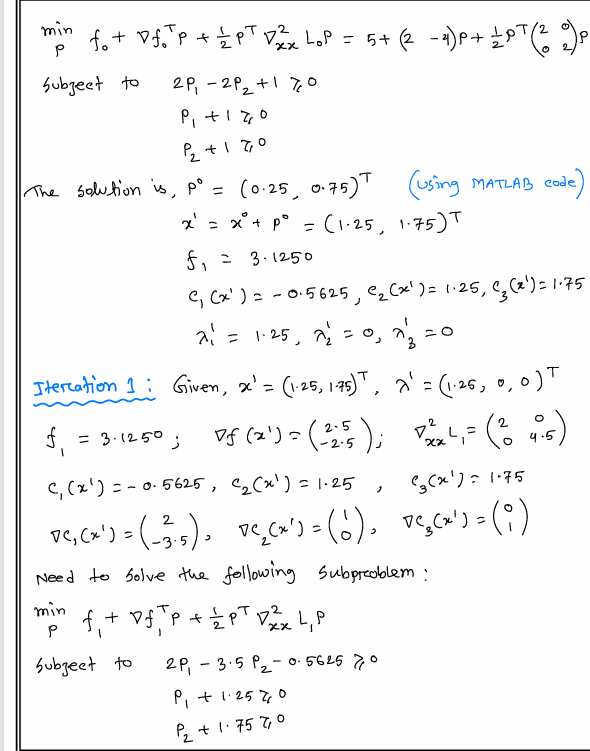 min f₀ + ∇f₀ᵀp + ½ pᵀ ∇²ₓₓ L₀p = 5 + (2 -4)p + ½ pᵀ (2 0 0 2) p
p
Subject to 2P₁ - 2P₂ + 1 ≥ 0
P₁ + 1 ≥ 0
P₂ + 1 ≥ 0
The solution is, P⁰ = (0.25, 0.75)ᵀ (using MATLAB code)
x¹ = x⁰ + p⁰ = (1.25, 1.75)ᵀ
f₁ = 3.1250
C₁(x¹) = -0.5625, C₂(x¹) = 1.25, C₃(x¹) = 1.75
λ₁¹ = 1.25, λ₂¹ = 0, λ₃¹ = 0
Itercation 1 : Given, x¹ = (1.25, 1.75)ᵀ, λ¹ = (1.25, 0, 0)ᵀ
f₁ = 3.1250 ; ∇f(x¹) = (2.5 -2.5) ; ∇²ₓₓ L₁ = (2 0 0 4.5)
C₁(x¹) = -0.5625, C₂(x¹) = 1.25 , C₃(x¹) = 1.75
∇C₁(x¹) = (2 -3.5), ∇C₂(x¹) = (1 0), ∇C₃(x¹) = (0 1)
Need to solve the following subproblem :
min f₁ + ∇f₁ᵀp + ½ pᵀ ∇²ₓₓ L₁p
p
Subject to 2P₁ - 3.5 P₂ - 0.5625 ≥ 0
P₁ + 1.25 ≥ 0
P₂ + 1.75 ≥ 0